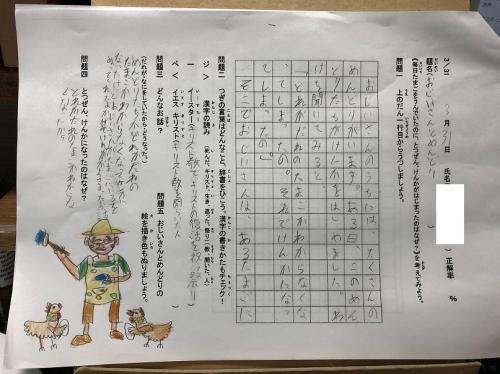 3/31
題名《おじいさんとめんどり》
3月31日 氏名( )正解率 %
《毎日たまごをうんでいたのに、とつぜん、けんかがはじまったのはなぜ?》を考えてみよう。
問題一 上のだん一行目からうつしましょう。
おじいさんのうちには、たくさんの
めんどりがいます。ある日、このめん
どりたちがけんかをはじめました。わ
けを聞いてみると
どれがだれのたまごかわからなくな
ってしまったの。それでけんかになっ
てしまったの」
そこでおじいさんは、あるたまごに
問題二 つぎの言葉はどんなこと、辞書をひこう。漢字の書きかたもチェック!
漢字の読み (死んだ、キリスト、生き、返って、祭り、一教、開いた、人)
ジ〉 イースター(キリスト教で、キリストの復活を祝う祭り)
ペ〈 イエス キリスト(キリスト教を開いた人)
問題三 どんなお話?
(だれが・なにをしていたか・どうなった)
問題五 おじいさんとめんどりの
絵を描き色もぬりましょう。
問題四 とつぜん、けんかになったのはなぜ?